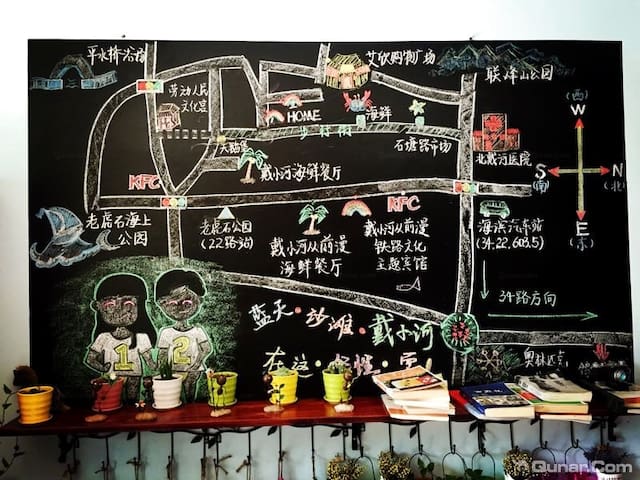 平水桥浴场
艾欣购物广场
联峰山公园
劳动人民
文化宫
HOME
海鲜
步行街
石塘路市场
北戴河医院
(西)
W
S
(南)
N
(北)
E
(东)
大脑袋
戴小河海鲜餐厅
KFC
KFC
老虎石海上
公园
老虎石公园
(22路站)
戴小河从前漫
海鲜餐厅
戴小河从前漫
铁路文化
主题宾馆
海滨汽车站
(34.22,608,5)
34路方向
蓝天·沙滩·戴小河
在这·
奥林匹克
1
2
Qunar.Com